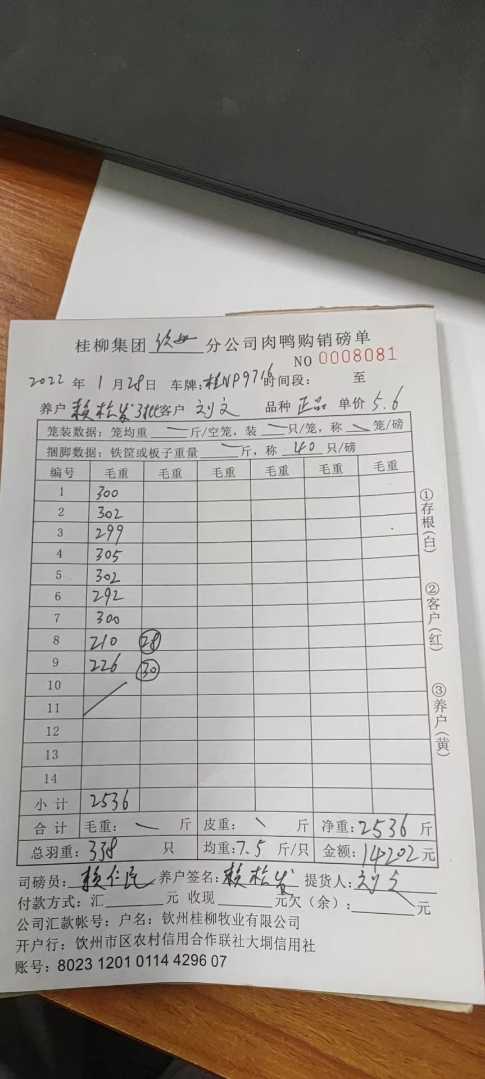 桂柳集团 钦州 分公司肉鸭购销磅单
NO 0008081
2022 年 1 月 28 日 车牌:桂NP9716 时间段: 至
养户 赖桂发 3批 客户 刘文 品种 正品 单价 5.6
笼装数据:笼均重 斤/空笼,装 只/笼,称 笼/磅
捆脚数据:铁筐或板子重量 斤,称 40 只/磅
编号 毛重 毛重 毛重 毛重 毛重 毛重
1 300
2 302
3 299
4 305
5 302
6 292
7 300
8 210 28
9 226 30
10
11
12
13
14
小计 2536
合计 毛重: 斤 皮重: 斤 净重:2536 斤
总羽重:338 只 均重:7.5 斤/只 金额:14202元
司磅员: 养户签名:赖桂发 提货人:刘文
付款方式:汇 元 收现 元欠(余): 元
公司汇款帐号:户名:钦州桂柳牧业有限公司
开户行:钦州市区农村信用合作联社大垌信用社
账号:8023 1201 0114 4296 07
①存根(白)
②客户(红)
③养户(黄)